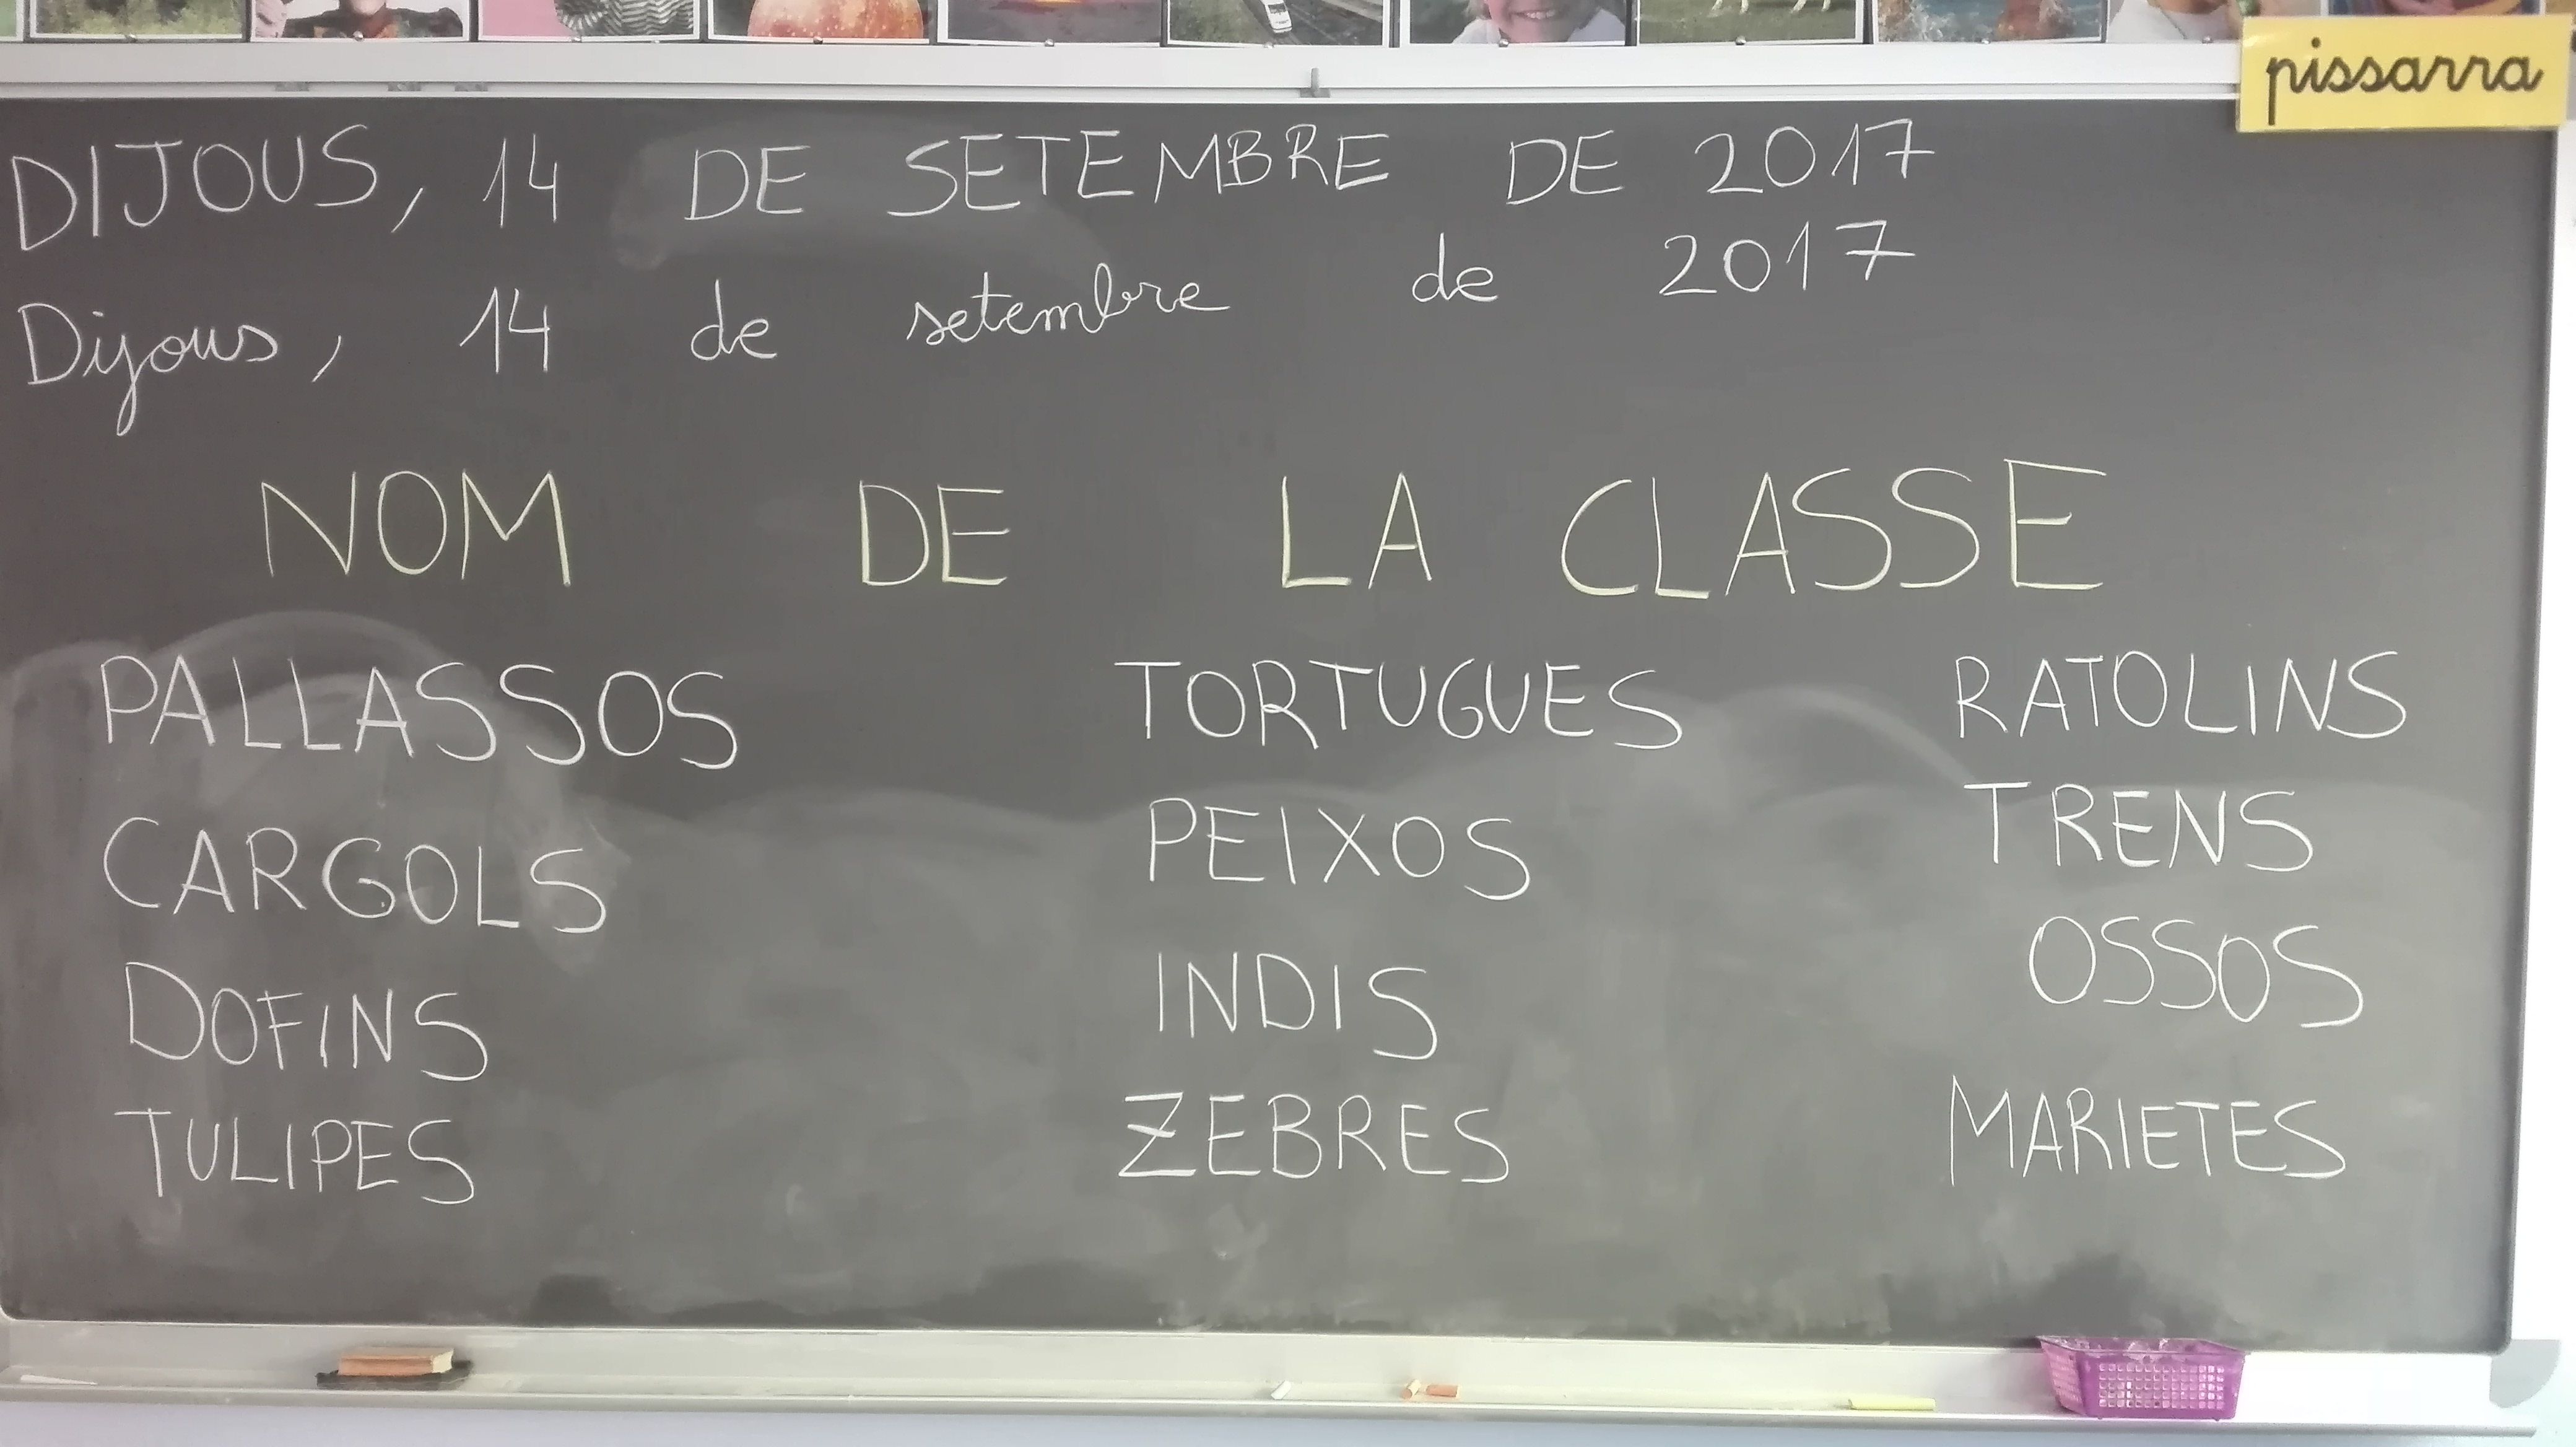 pissarra
DIJOUS, 14 DE SETEMBRE DE 2017
Dijous, 14 de setembre de 2017
NOM DE LA CLASSE
PALLASSOS TORTUGUES RATOLINS
CARGOLS PEIXOS TRENS
DOFINS INDIS OSSOS
TULIPES ZEBRES MARIETES